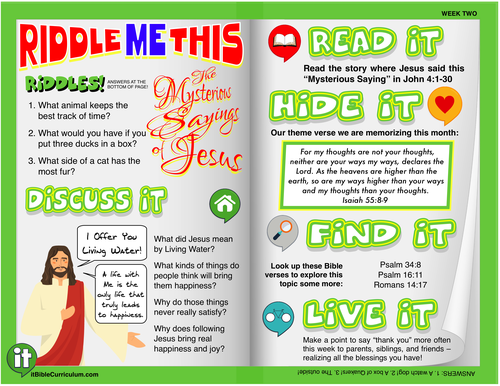 RIDDLE ME THIS
RiDDLES!
ANSWERS AT THE
BOTTOM OF PAGE!
1. What animal keeps the
best track of time?
2. What would you have if you
put three ducks in a box?
3. What side of a cat has the
most fur?
The
Mysterious
Sayings
of Jesus
DiSCUSS iT
I Offer You
Living Water!
A life with
Me is the
only life that
truly leads
to happiness.
What did Jesus mean
by Living Water?
What kinds of things do
people think will bring
them happiness?
Why do those things
never really satisfy?
Why does following
Jesus bring real
happiness and joy?
it
itBibleCurriculum.com
WEEK TWO
READ iT
Read the story where Jesus said this
“Mysterious Saying” in John 4:1-30
HiDE iT
Our theme verse we are memorizing this month:
For my thoughts are not your thoughts,
neither are your ways my ways, declares the
Lord. As the heavens are higher than the
earth, so are my ways higher than your ways
and my thoughts than your thoughts.
Isaiah 55:8-9
FiND iT
Look up these Bible
verses to explore this
topic some more:
Psalm 34:8
Psalm 16:11
Romans 14:17
LiVE iT
Make a point to say “thank you” more often
this week to parents, siblings, and friends –
realizing all the blessings you have!
ANSWERS: 1. A watch dog! 2. A box of Quakers! 3. The outside!